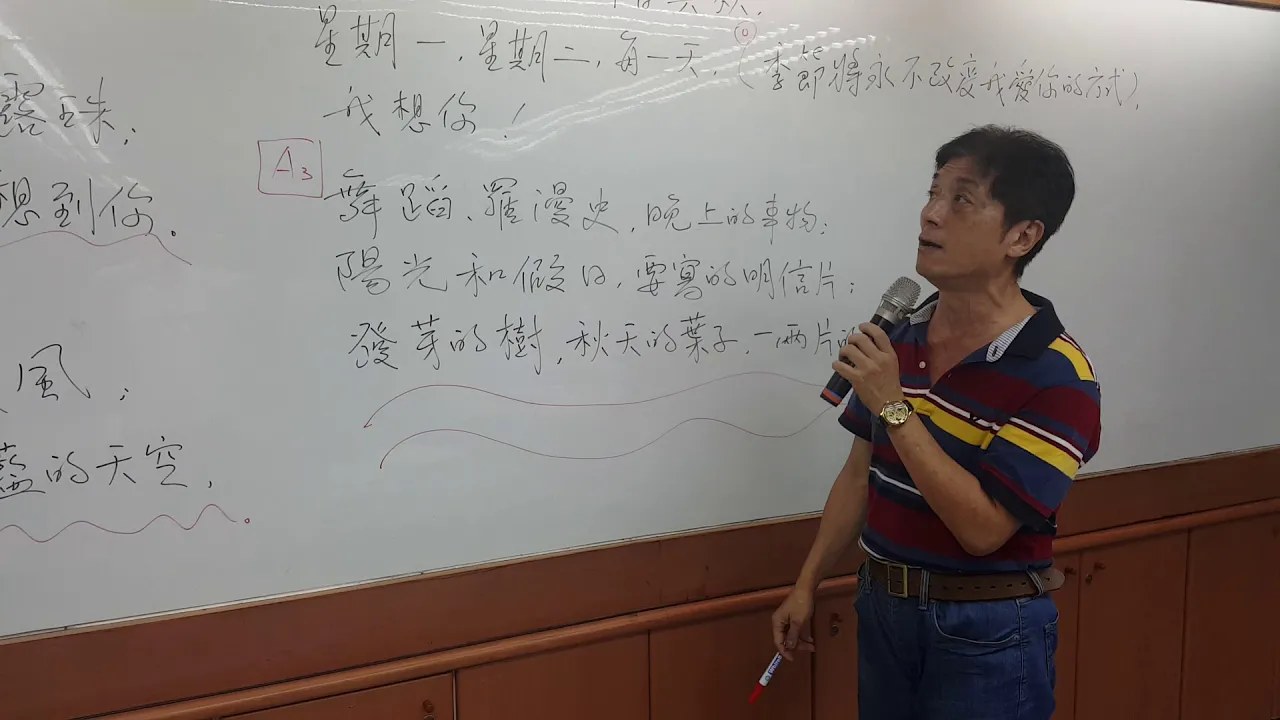 露珠;
想到你.
風;
藍的天空,
星期一,星期二,每一天,(季節將永不改變我愛你的方式),
我想你!
A3
舞蹈、羅漫史,晚上的事物;
陽光和假日,要寫的明信片;
發芽的樹,秋天的葉子,一兩片